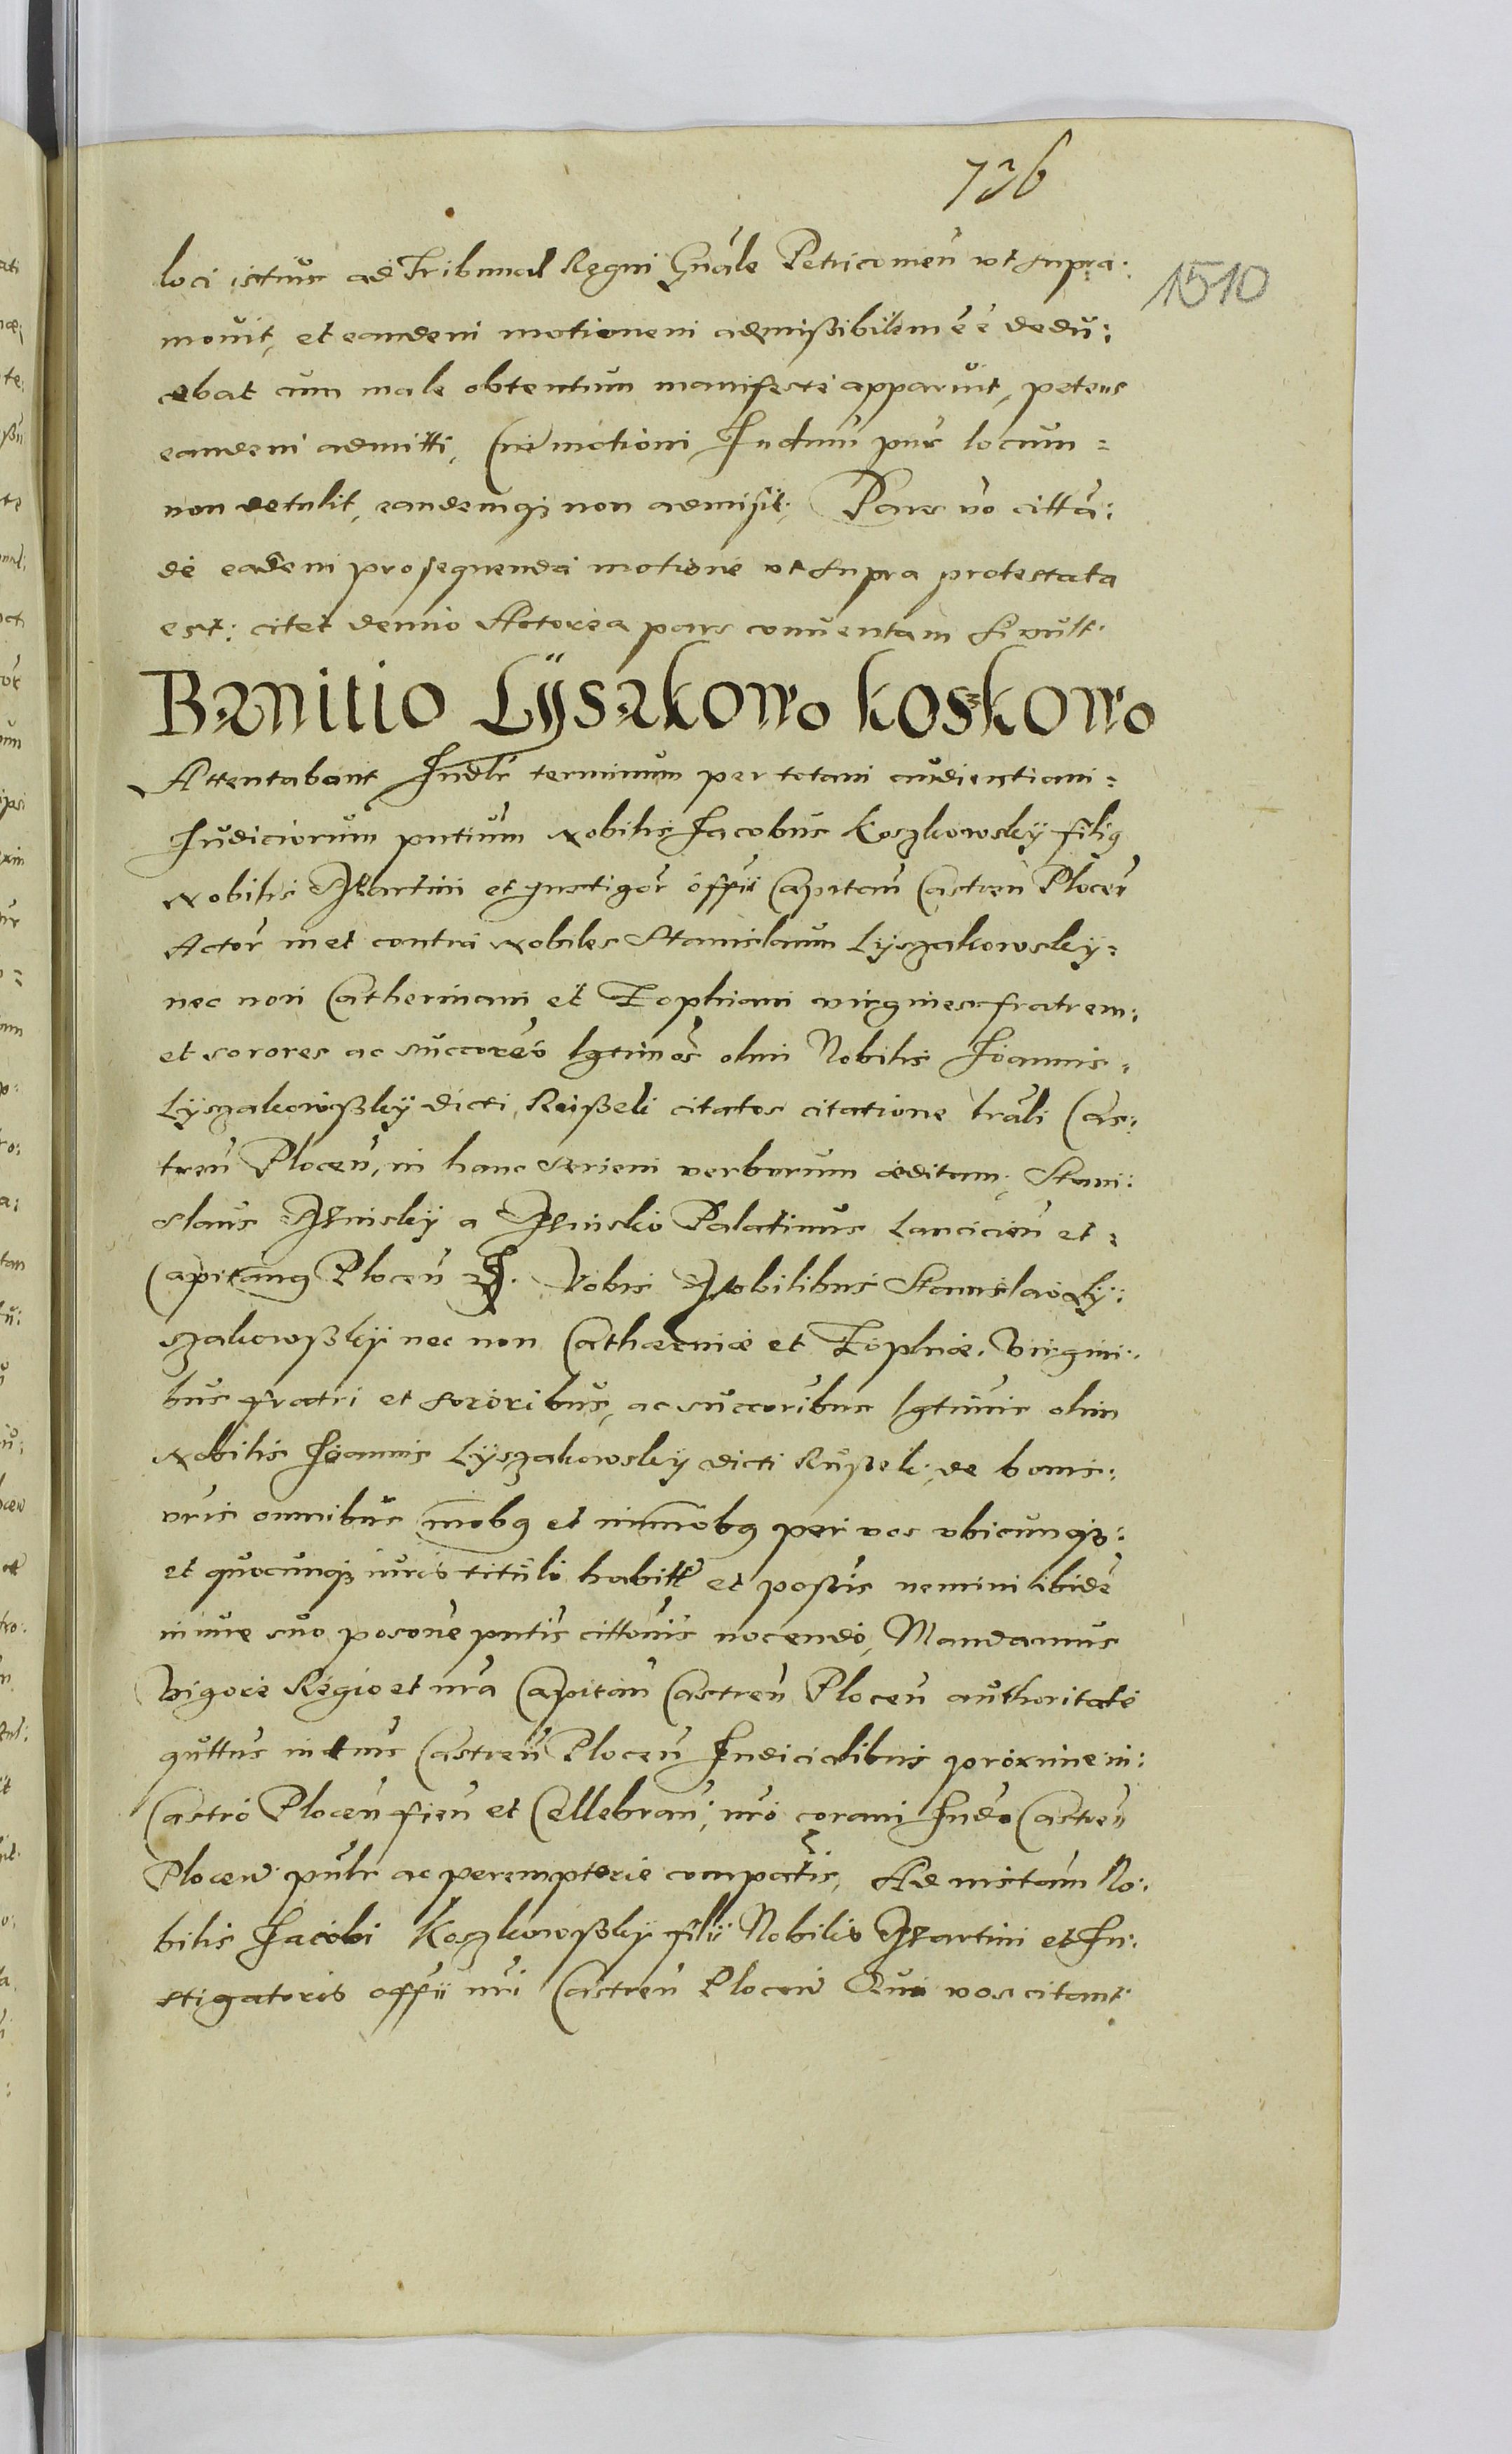 736
1510
loci istius ad Tribunal Regni Gnãle Petricouien̄ vt supra
mouit, et eandem motionem admißibilem ēē dedu:
cebat cum male obtentum manifeste apparuit, petens
eandem admitti, Cui motioni Iudiuḿ pns̃ locum =
non detulit, eandemq; non admisit; Pars vo citta:
de eadem prosequenda motione vt supra protestata
est: citet denuo Actorea pars conuentam si vult.
Banitio Lÿsakowo Koskowo
Attentabant Iudlr̃ terminum per totam audientiam =
Iudiciorum pntium Nobilis Iacobus Koszkowskÿ filig
Nobilis Martini et Instigor̃ offÿ Capitan̄ Castren̄ Plocen̄
Actor met contra Nobiles Stanislaum Lÿszakowskÿ =
nec non Catherinam et Zophiam virgines fratrem:
et sorores ac succores lgtimos olim Nobilis Ioannis =
Lÿszakowßkÿ dicti Rußek citatos citatione trãli Cas:
tren̄ Plocen̄, in hanc seriem verborum æditam; Stani:
slaus Minskÿ a Minsko Palatinus Lancicien̄ et =
Capitanq Plocen̄ Vobis Nobilibus Stanislao Lÿ:
szakowßkÿ nec non Catharinæ et Zophiæ Virgini:
bus fratri et sororibus, ac succoribus lgtimis olim
Nobilis Ioannis Lÿszakowskÿ dicti Rußek; de bonis:
vris omnibus mobq et immobq per vos vbicunq;:
et quocunq; iuris titulo habitt̃ et possis nemini ibide
in iure suo posone pntis cittonis nocendo, Mandamus
Vigore Regio et nra Capitan̄ Castren̄ Plocen̄ authoritate
quttus in tnis Castren̄ Plocen̄ Iudicialibus proxime in:
Castro Plocen̄ fien̄ et Cellebran̄; nro coram Iudo Castren̄
Plocen̄ pnlr ac peremptorie compatis, Ad instam No:
bilis Iacobi Koszkowßkÿ filÿ Nobilis Martini et In:
stigatoris offÿ nri Castren̄ Plocen̄ Qui vos citant